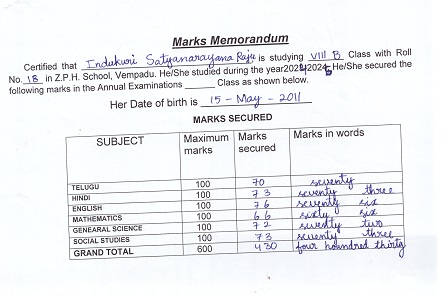 Marks Memorandum
Certified that Indukuri Satyanarayana Raju is studying VIII B Class with Roll
No. 18 in Z.P.H. School, Vempadu. He/She studied during the year He/She secured the
following marks in the Annual Examinations ______ Class as shown below.
Her Date of birth is 15 - May - 2011
MARKS SECURED
SUBJECT Maximum marks Marks secured Marks in words
TELUGU 100 70 seventy
HINDI 100 73 seventy three
ENGLISH 100 76 seventy six
MATHEMATICS 100 66 sixty six
GENEARAL SCIENCE 100 72 seventy two
SOCIAL STUDIES 100 73 seventy three
GRAND TOTAL 600 430 four houndred thirty